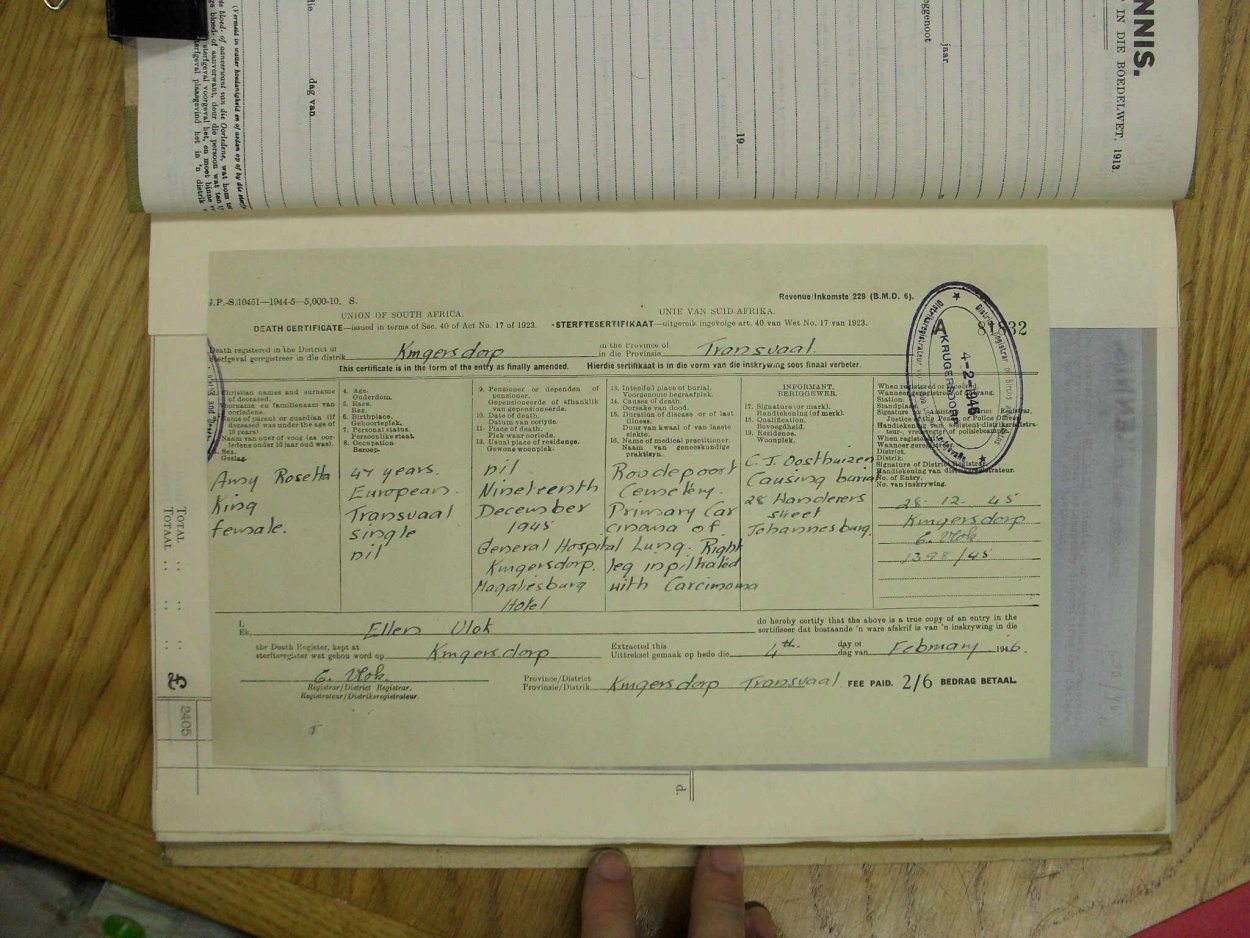 NNIS.
IN DIE BOEDELWET, 1913.
jaar
ggenoot
die
dag van
19
J.P.-S.10451—1944-5—5,000-10. S.
Revenue/Inkomste 229 (B.M.D. 6).
UNION OF SOUTH AFRICA.
UNIE VAN SUID-AFRIKA.
DEATH CERTIFICATE—issued in terms of Sec. 40 of Act No. 17 of 1923.
-STERFTESERTIFIKAAT—uitgereik ingevolge art. 40 van Wet No. 17 van 1923.
A 81832
Death registered in the District of
Sterfgeval geregistreer in die distrik
Kmgersdorp
in the Province of
in die Provinsie
Transvaal.
This certificate is in the form of the entry as finally amended.
Hierdie sertifikaat is in die vorm van die inskrywing soos finaal verbeter.
KRUGERSDORP
4-2-1946
Christian names and surname
of deceased.
Voornaam en familienaam van
oorledene.
Name of parent or guardian (if
deceased was under the age of
10 years).
Naam van ouer of voog (as oor-
ledene onder 10 jaar oud was).
Sex.
Geslag.
Amy Rosetta
King
female.
4. Age.
Ouderdom.
5. Race.
Ras.
6. Birthplace.
Geboorteplek.
7. Personal status.
Persoonlike staat.
8. Occupation
Beroep.
47 years.
European.
Transvaal
single
nil
9. Pensioner or dependen of
pensioner.
Gepensioneerde of afhanklik
van gepensioneerde.
10. Date of death.
Datum van oorlyde.
11. Place of death.
Plek waar oorlede.
12. Usual place of residence.
Gewone woonplek.
nil
Nineteenth
December
1945
General Hospital
Kmgersdorp.
Magaliesburg
Hotel
13. Intended place of burial.
Voorgenome begraafplek.
14. Causes of death.
Oorsake van dood.
15. Duration of disease or of last
illness.
Duur van kwaal of van laaste
siekte.
16. Name of medical practitioner.
Naam van geneeskundige
praktisyn.
Roodepoort
Cemetery.
Primary Car
cinoma of
Lung. Right
leg inpilhated
with Carcimoma
INFORMANT.
BERIGGEWER.
17. Signature (or mark).
Handtekening (of merk).
18. Qualification.
Bevoegdheid.
19. Residence.
Woonplek.
C.J. Oosthuizen
Causing burial
28 Wanderers
street
Johannesburg.
When registered or received.
Station.
Signature of Assistant District Registrar,
Justice of the Peace or Police Officer.
When registered.
Wanneer geregistreer.
District.
Distrik.
Signature of District Registrar.
Handtekening van distriksregistrateur.
No. of Entry.
No. van inskrywing.
28. 12. 45
Kmgersdorp
E. Vlok
1398/45
TOTAL
TOTAAL
£
2405
I,
Ek,
Ellen Vlok
do hereby certify that the above is a true copy of an entry in the
sertifiseer dat bostaande 'n ware afskrif is van 'n inskrywing in die
the Death Register, kept at
sterfteregister wat gehou word op
Kmgersdorp
Extracted this
Uittreksel gemaak op hede die
4th.
day of
dag van
February 1946.
E. Vlok.
Registrar/District Registrar.
Registrateur/Distriksregistrateur.
Province/District
Provinsie/Distrik
Kmgersdorp Transvaal
FEE PAID. 2/6 BEDRAG BETAAL.
d.